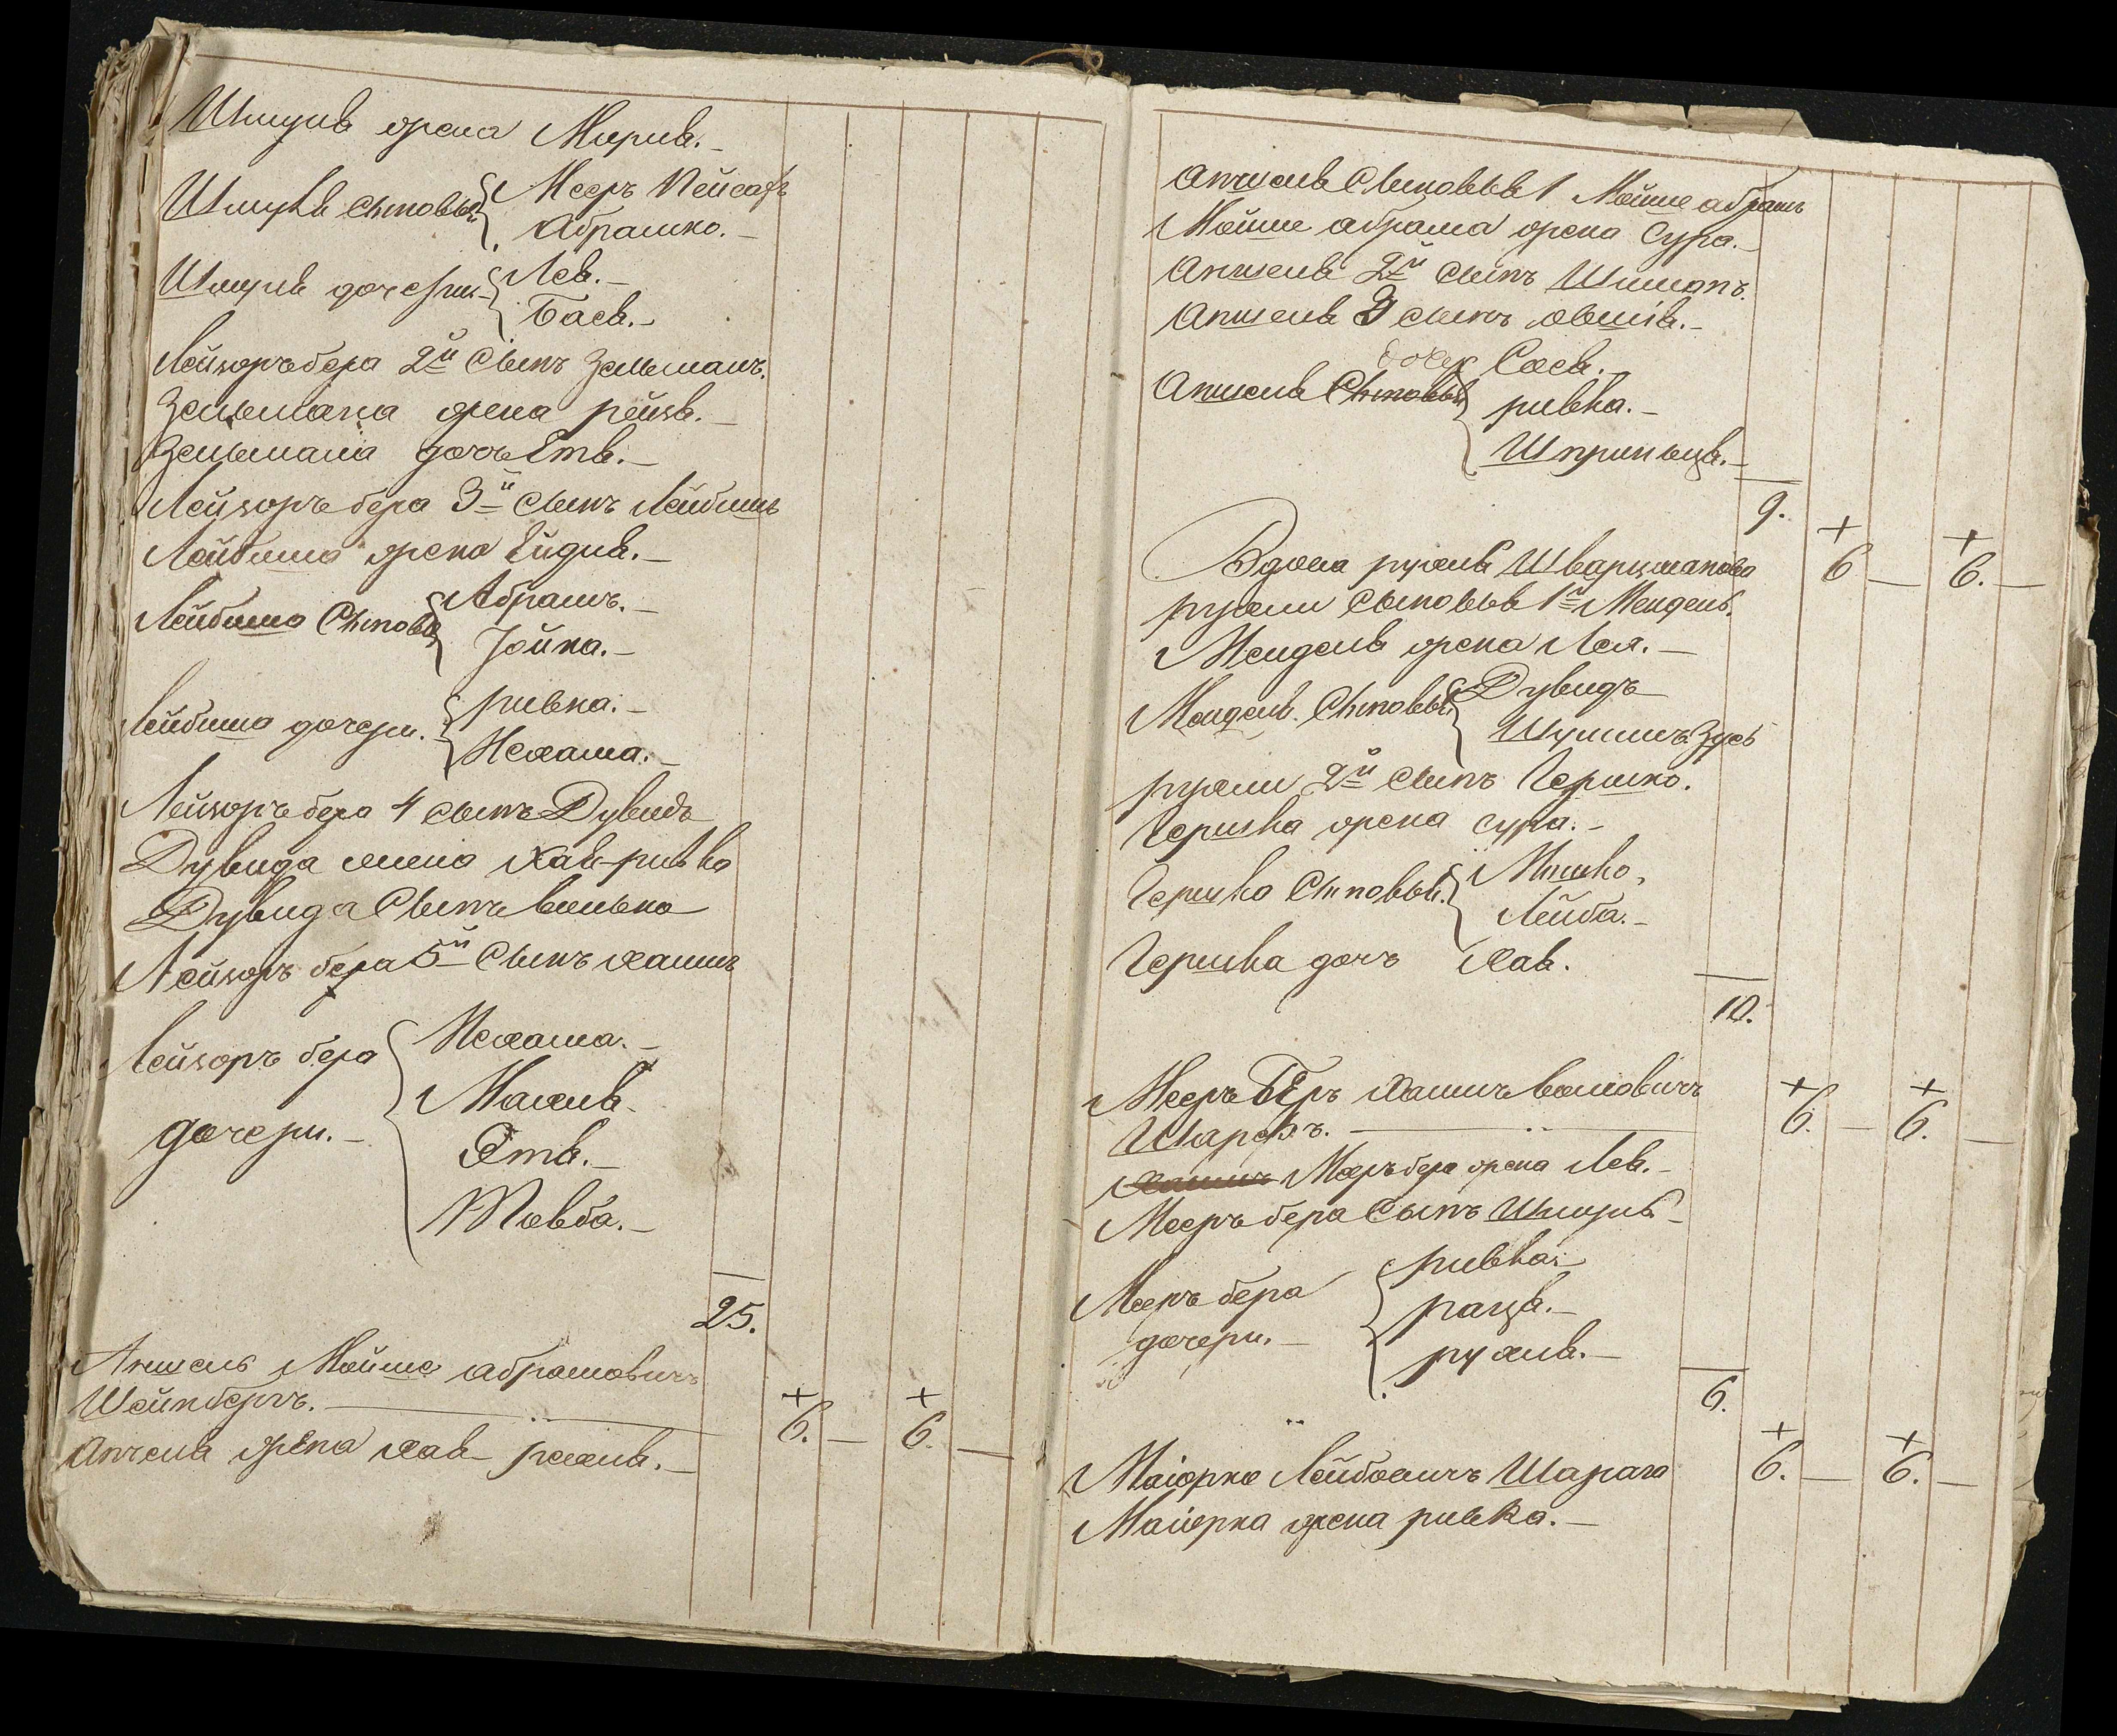 Шмуля жена Мирля. —
Шмуля Сыновья { Меер Пейсахъ
Абрамко. —
Шмуля дочери { Лея. —
Бася. —
Лейзоръ бера 2й Сынъ Зельманъ.
Зельмана жена рейзя. —
Зельмана дочь Етя. —
Лейзоръ бера 3й Сынъ Лейбишъ
Лейбиша жена Ейдля. —
Лейбиша Сыновья { Абрамъ. —
Іойна. —
Лейбиша дочери. { ривка. —
Нехама. —
Лейзоръ бера 4 сынъ Дувидъ
Дувида жена хая-ривка
Дувида Сынъ велько
Лейзоръ бера 5й Сынъ хаимъ
Лейзоръ бера { Нехама. —
Малля
дочери. — Етя. —
Товба. —
25.
Аншель Мойше абрамовичъ
Шейнбергъ. — 6. — 6. —
Аншеля жена хая рахля. —
Аншеля Сыновья 1 Мойше абрамъ
Мойше абрама жена Сура. —
Аншеля 2й Сынъ Шимонъ.
Аншеля 3 сынъ овшія. —
дочер Сося. —
Аншеля Сыновья { ривка. —
Шпринця. —
9.
Вдова рухля Шварцманова 6 — 6. —
рухли Сыновья 1й Мендель.
Менделя жена Лея. —
Менделя Сыновья { Дувидъ
Шулимъ Зусь
рухли 2й Сынъ Гершко.
Гершка жена сура. —
Гершко Сыновья. { Мошко,
Лейба. —
Гершка дочь Хая.
10.
Мееръ Беръ Хаимъ волковичъ 6. — 6. —
Шарфъ. —
Хаимъ Меръ бера жена Лея. —
Меръ бера Сынъ Шмуль —
Меръ бера { ривка. —
дочери. — раця. —
рухля. —
6.
Маіорко Лейбовичъ Шарага 6. — 6. —
Маіорка жена ривка. —